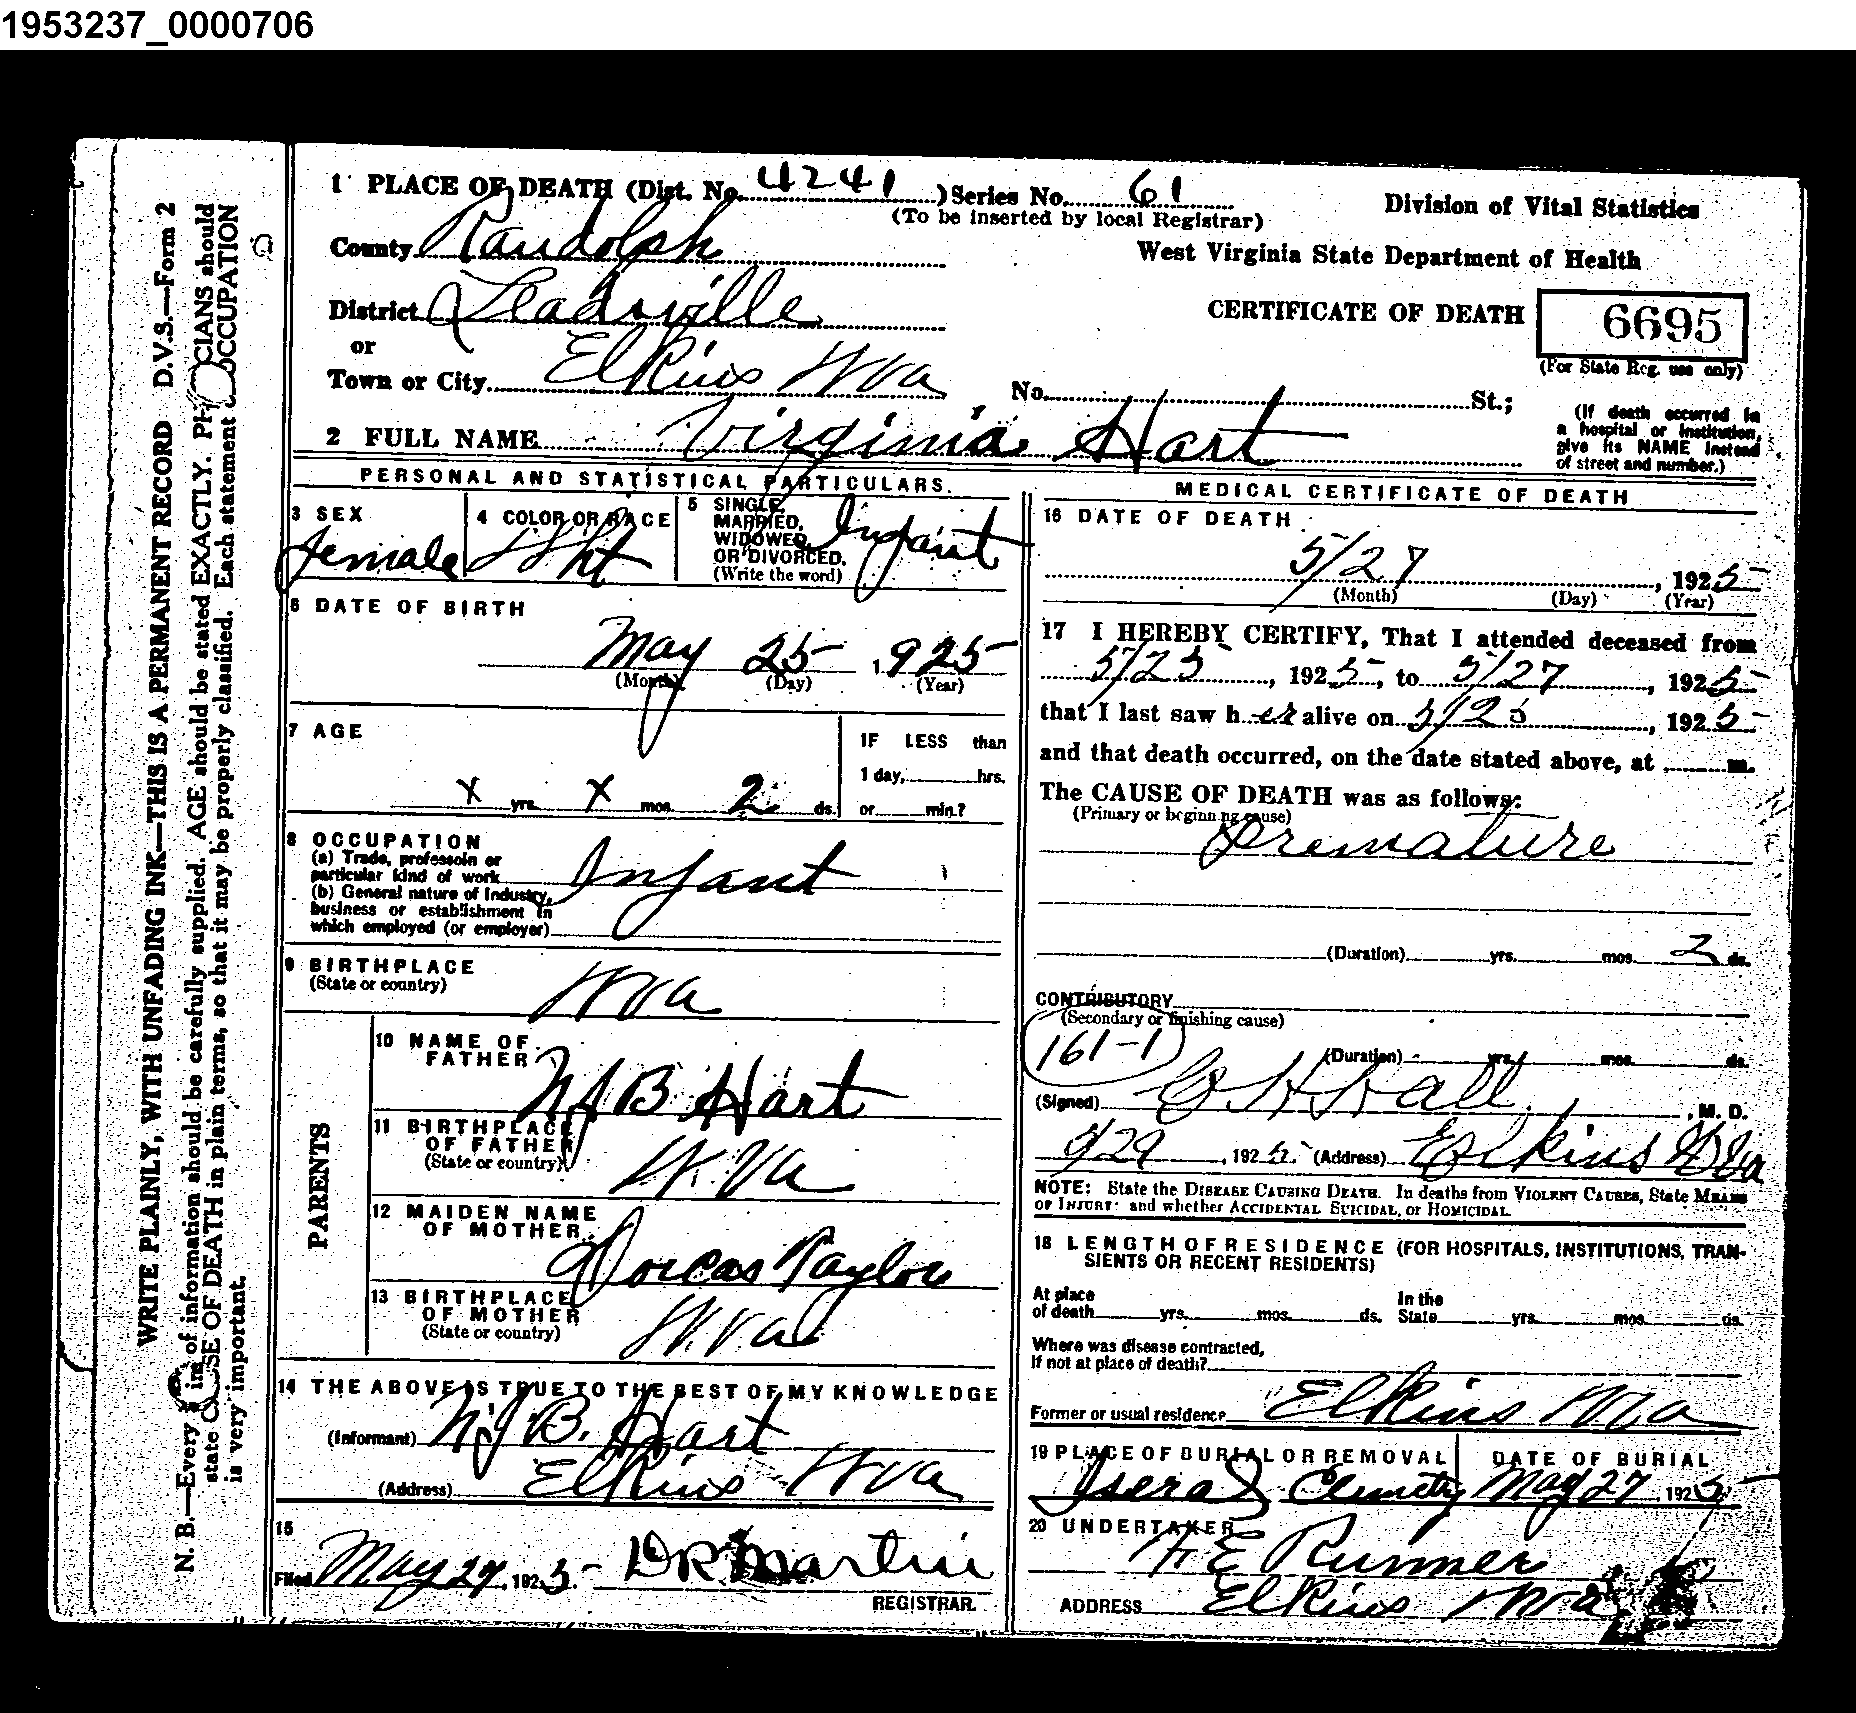 1953237_0000706
1 PLACE OF DEATH (Dist. No. 4241 ) Series No. 61
(To be inserted by local Registrar)
Division of Vital Statistics
County Randolph
West Virginia State Department of Health
District Leadsville
CERTIFICATE OF DEATH 6695
(For State Reg. use only)
or
Town or City Elkins WVa No. St.;
(If death occurred in
a hospital or institution,
give its NAME instead
of street and number.)
2 FULL NAME Virginia Hart
PERSONAL AND STATISTICAL PARTICULARS.
3 SEX
female
4 COLOR OR RACE
Wht
5 SINGLE,
MARRIED,
WIDOWED,
OR DIVORCED.
(Write the word)
Infant
6 DATE OF BIRTH
May 25 1925
(Month) (Day) (Year)
7 AGE
x yrs. x mos. 2 ds.
IF LESS than
1 day, hrs.
or min.?
8 OCCUPATION
(a) Trade, professoin or
particular kind of work
(b) General nature of Industry,
business or establishment in
which employed (or employer)
Infant
9 BIRTHPLACE
(State or country)
WVa
PARENTS
10 NAME OF
FATHER
B Hart
11 BIRTHPLACE
OF FATHER
(State or country)
W.Va
12 MAIDEN NAME
OF MOTHER
Dorcas Taylor
13 BIRTHPLACE
OF MOTHER
(State or country)
W.Va
14 THE ABOVE IS TRUE TO THE BEST OF MY KNOWLEDGE
(Informant) B. Hart
(Address) Elkins WVa
15
Filed May 27, 1925 Martin
REGISTRAR.
MEDICAL CERTIFICATE OF DEATH
16 DATE OF DEATH
5/27, 1925
(Month) (Day) (Year)
17 I HEREBY CERTIFY, That I attended deceased from
5/25, 1925, to 5/27, 1925
that I last saw her alive on 5/25, 1925
and that death occurred, on the date stated above, at m.
The CAUSE OF DEATH was as follows:
(Primary or beginning cause)
Premature
(Duration) yrs. mos. 2 ds.
CONTRIBUTORY
(Secondary or finishing cause)
161-1
(Duration) yrs. mos. ds.
(Signed) Hall, M. D.
, 192 (Address) Elkins WVa
NOTE: State the DISEASE CAUSING DEATH. In deaths from VIOLENT CAUSES, State MEANS
OF INJURY: and whether ACCIDENTAL SUICIDAL, or HOMICIDAL.
18 LENGTH OF RESIDENCE (FOR HOSPITALS, INSTITUTIONS, TRAN-
SIENTS OR RECENT RESIDENTS)
At place
of death yrs. mos. ds.
In the
State yrs. mos. ds.
Where was disease contracted,
If not at place of death?
Former or usual residence Elkins WVa
19 PLACE OF BURIAL OR REMOVAL
DATE OF BURIAL
May 27, 1925
20 UNDERTAKER
Runner
ADDRESS Elkins WVa
WRITE PLAINLY, WITH UNFADING INK—THIS IS A PERMANENT RECORD D.V.S.—Form 2
N. B.—Every of information should be carefully supplied. AGE should be stated EXACTLY. should
state OF DEATH in plain terms, so that it may be properly classified. Each statement OCCUPATION
is very important.